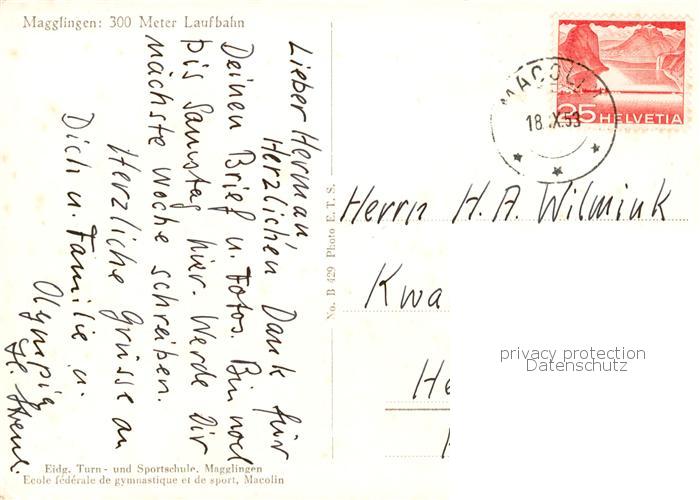 Magglingen: 300 Meter Laufbahn
Lieber Herman,
Herzlichen Dank für
Deinen Brief u. Fotos. Bin noch
bis Samstag hier. Werde Dir
nächste Woche schreiben.
Herzliche Grüsse an
Dich u. Familie u.
Olympia
Eidg. Turn- und Sportschule, Magglingen
Ecole fédérale de gymnastique et de sport, Macolin
No. B 429 Photo E. T. S.
MACOLIN
18.IX.53
25 HELVETIA
Herrn H. A. Wilmink
Kwa
He
privacy protection
Datenschutz